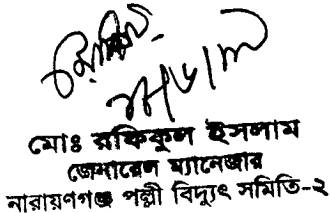 মোঃ রফিকুল ইসলাম
জেনারেল ম্যানেজার
নারায়ণগঞ্জ পল্লী বিদ্যুৎ সমিতি-২